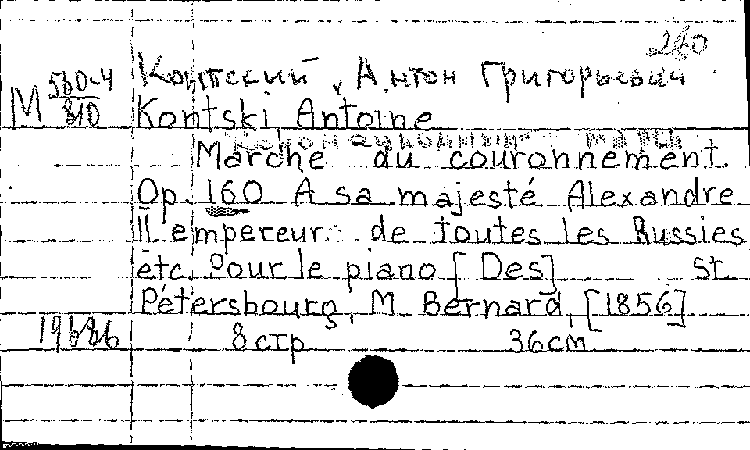 260
М 560-4/810
Контский, Антон Григорьевич
Kontski Antoine
Коронационный марш
Marche du couronnement.
Op. 160 A sa majesté Alexandre
II empereur de toutes les Russies
etc. Pour le piano [Des] St.
Pétersbourg, M. Bernard, [1856]
8 стр 36 cm